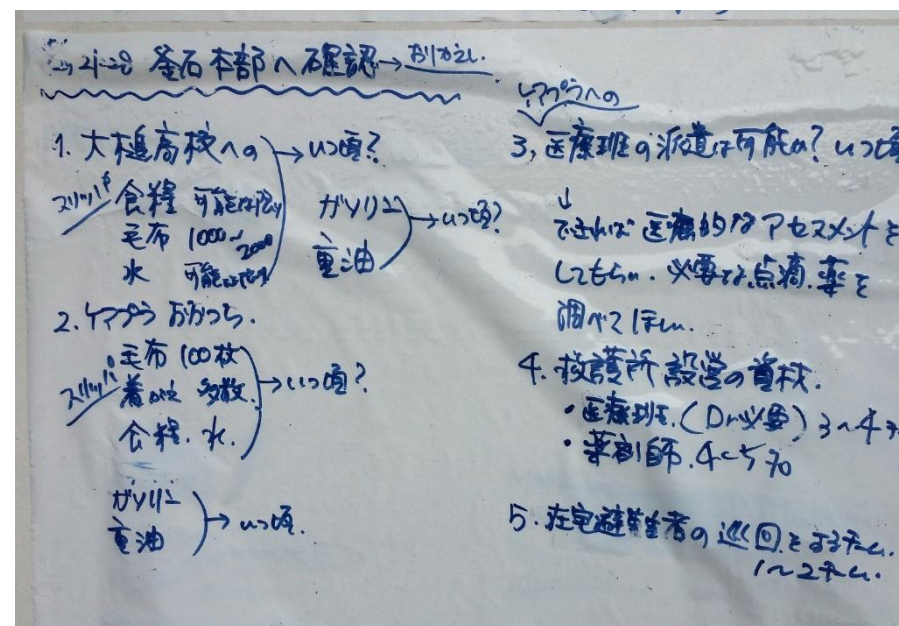 釜石本部へ確認→おりかえし.
1. 大槌高校への
スリッパ 食糧 可能な限り
毛布 1000~2000
水 可能な限り
→いつ頃?
ガソリン
重油
→いつ頃?
2. ケアプラ おおつち.
スリッパ 毛布 100枚
着がえ 多数.
食糧. 水.
→いつ頃?
ガソリン
重油
→いつ頃.
ケアプラへの
3, 医療班の派遣は可能か? いつ頃
↓
できれば 医療的なアセスメントを
してもらい. 必要な点滴. 薬を
調べてほしい.
4. 救護所 設営の資材.
・医療班. (Dr必要) 3~4
・薬剤師. 4~5
5. 在宅避難者の巡回をするチーム.
1~2チーム.